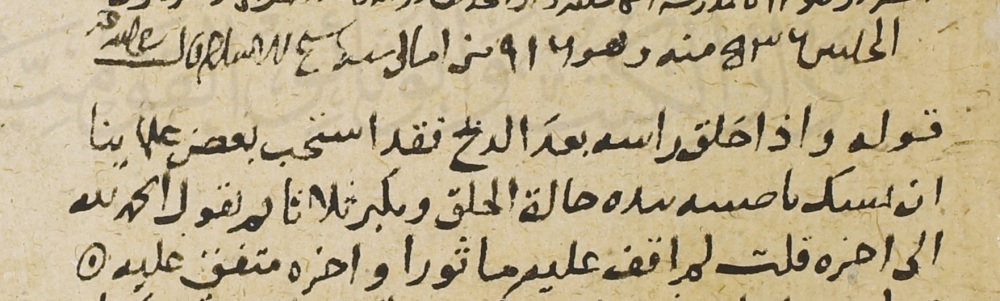 المجلس ٥٣٦ منه وهو ٩١٦ من امالي
قوله واذا حلق راسه بعد الذبح فقد استحب بعض علماينا
ان يمسك ناصيته بيده حالة الحلق ويكبر ثلاثا ثم يقول الحمد لله
الى اخره قلت لم اقف عليه ماثورا واخره متفق عليه ۞